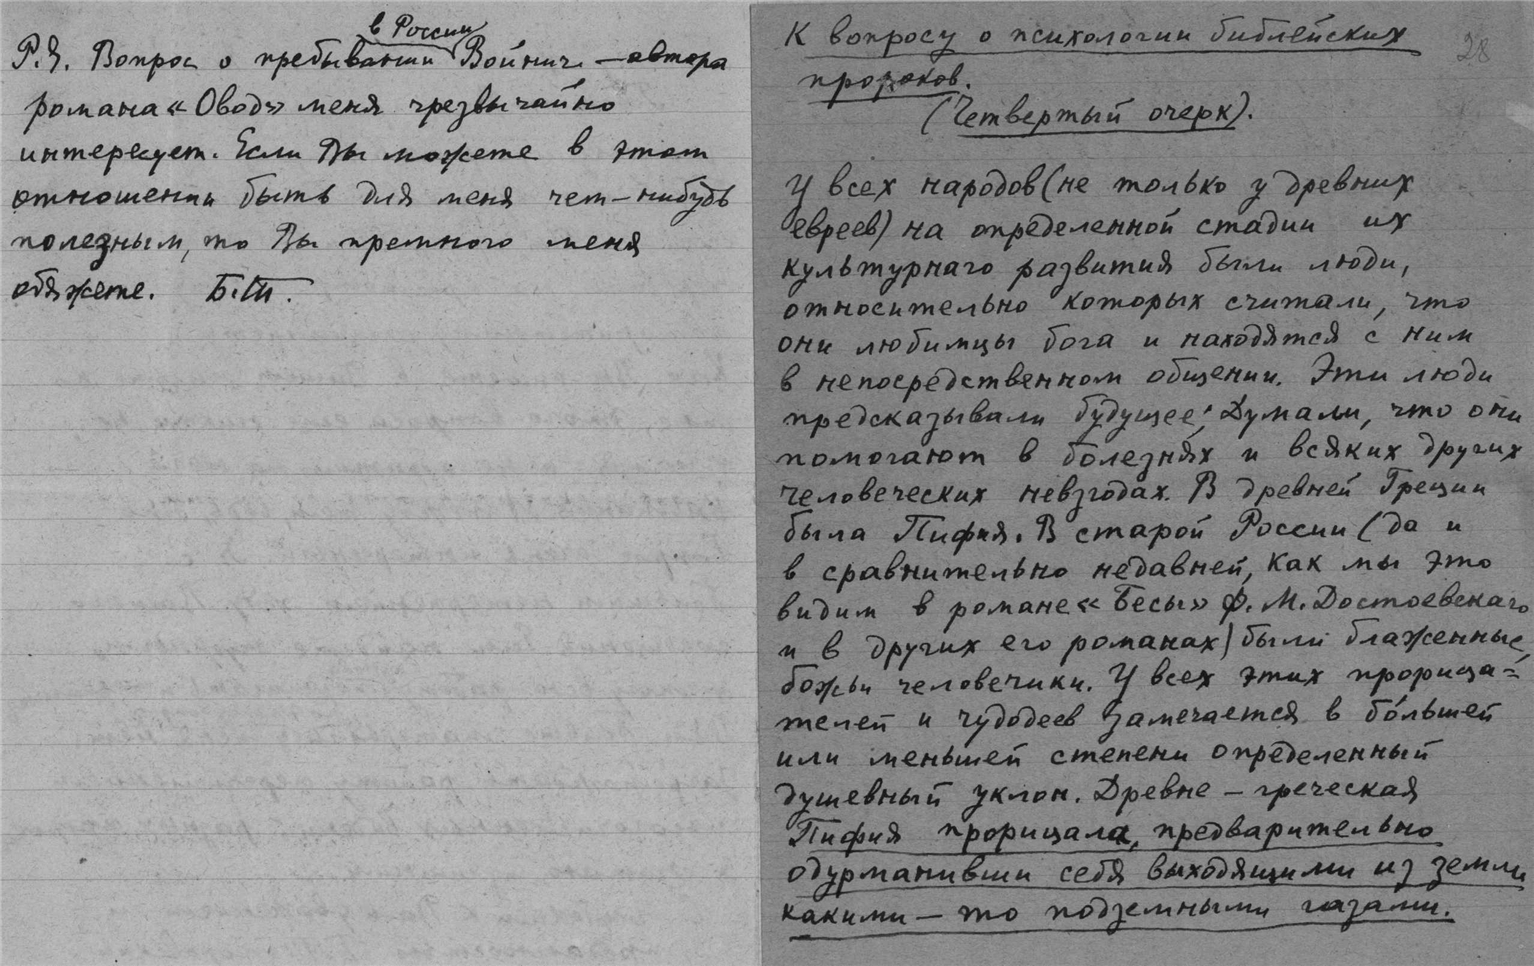 в России
Р.Я. Вопрос о пребывании Войнич — автора
романа «Овод» меня чрезвычайно
интересует. Если Вы можете в этом
отношении быть для меня чем-нибудь
полезным, то Вы премного меня
обяжете. Б.Т.
К вопросу о психологии библейских
пророков.
28
(Четвертый очерк).
У всех народов (не только у древних
евреев) на определенной стадии их
культурнаго развития были люди,
относительно которых считали, что
они любимцы бога и находятся с ним
в непосредственном общении. Эти люди
предсказывали будущее; Думали, что они
помогают в болезнях и всяких других
человеческих невзгодах. В древней Греции
была Пифия. В старой России (да и
в сравнительно недавней, как мы это
видим в романе «Бесы» Ф. М. Достоевскаго
и в других его романах) были блаженные,
божьи человечики. У всех этих прорица=
телей и чудодеев замечается в бо́льшей
или меньшей степени определенный
душевный уклон. Древне-греческая
Пифия прорицала, предварительно
одурманивши себя выходящими из земли
какими-то подземными газами.